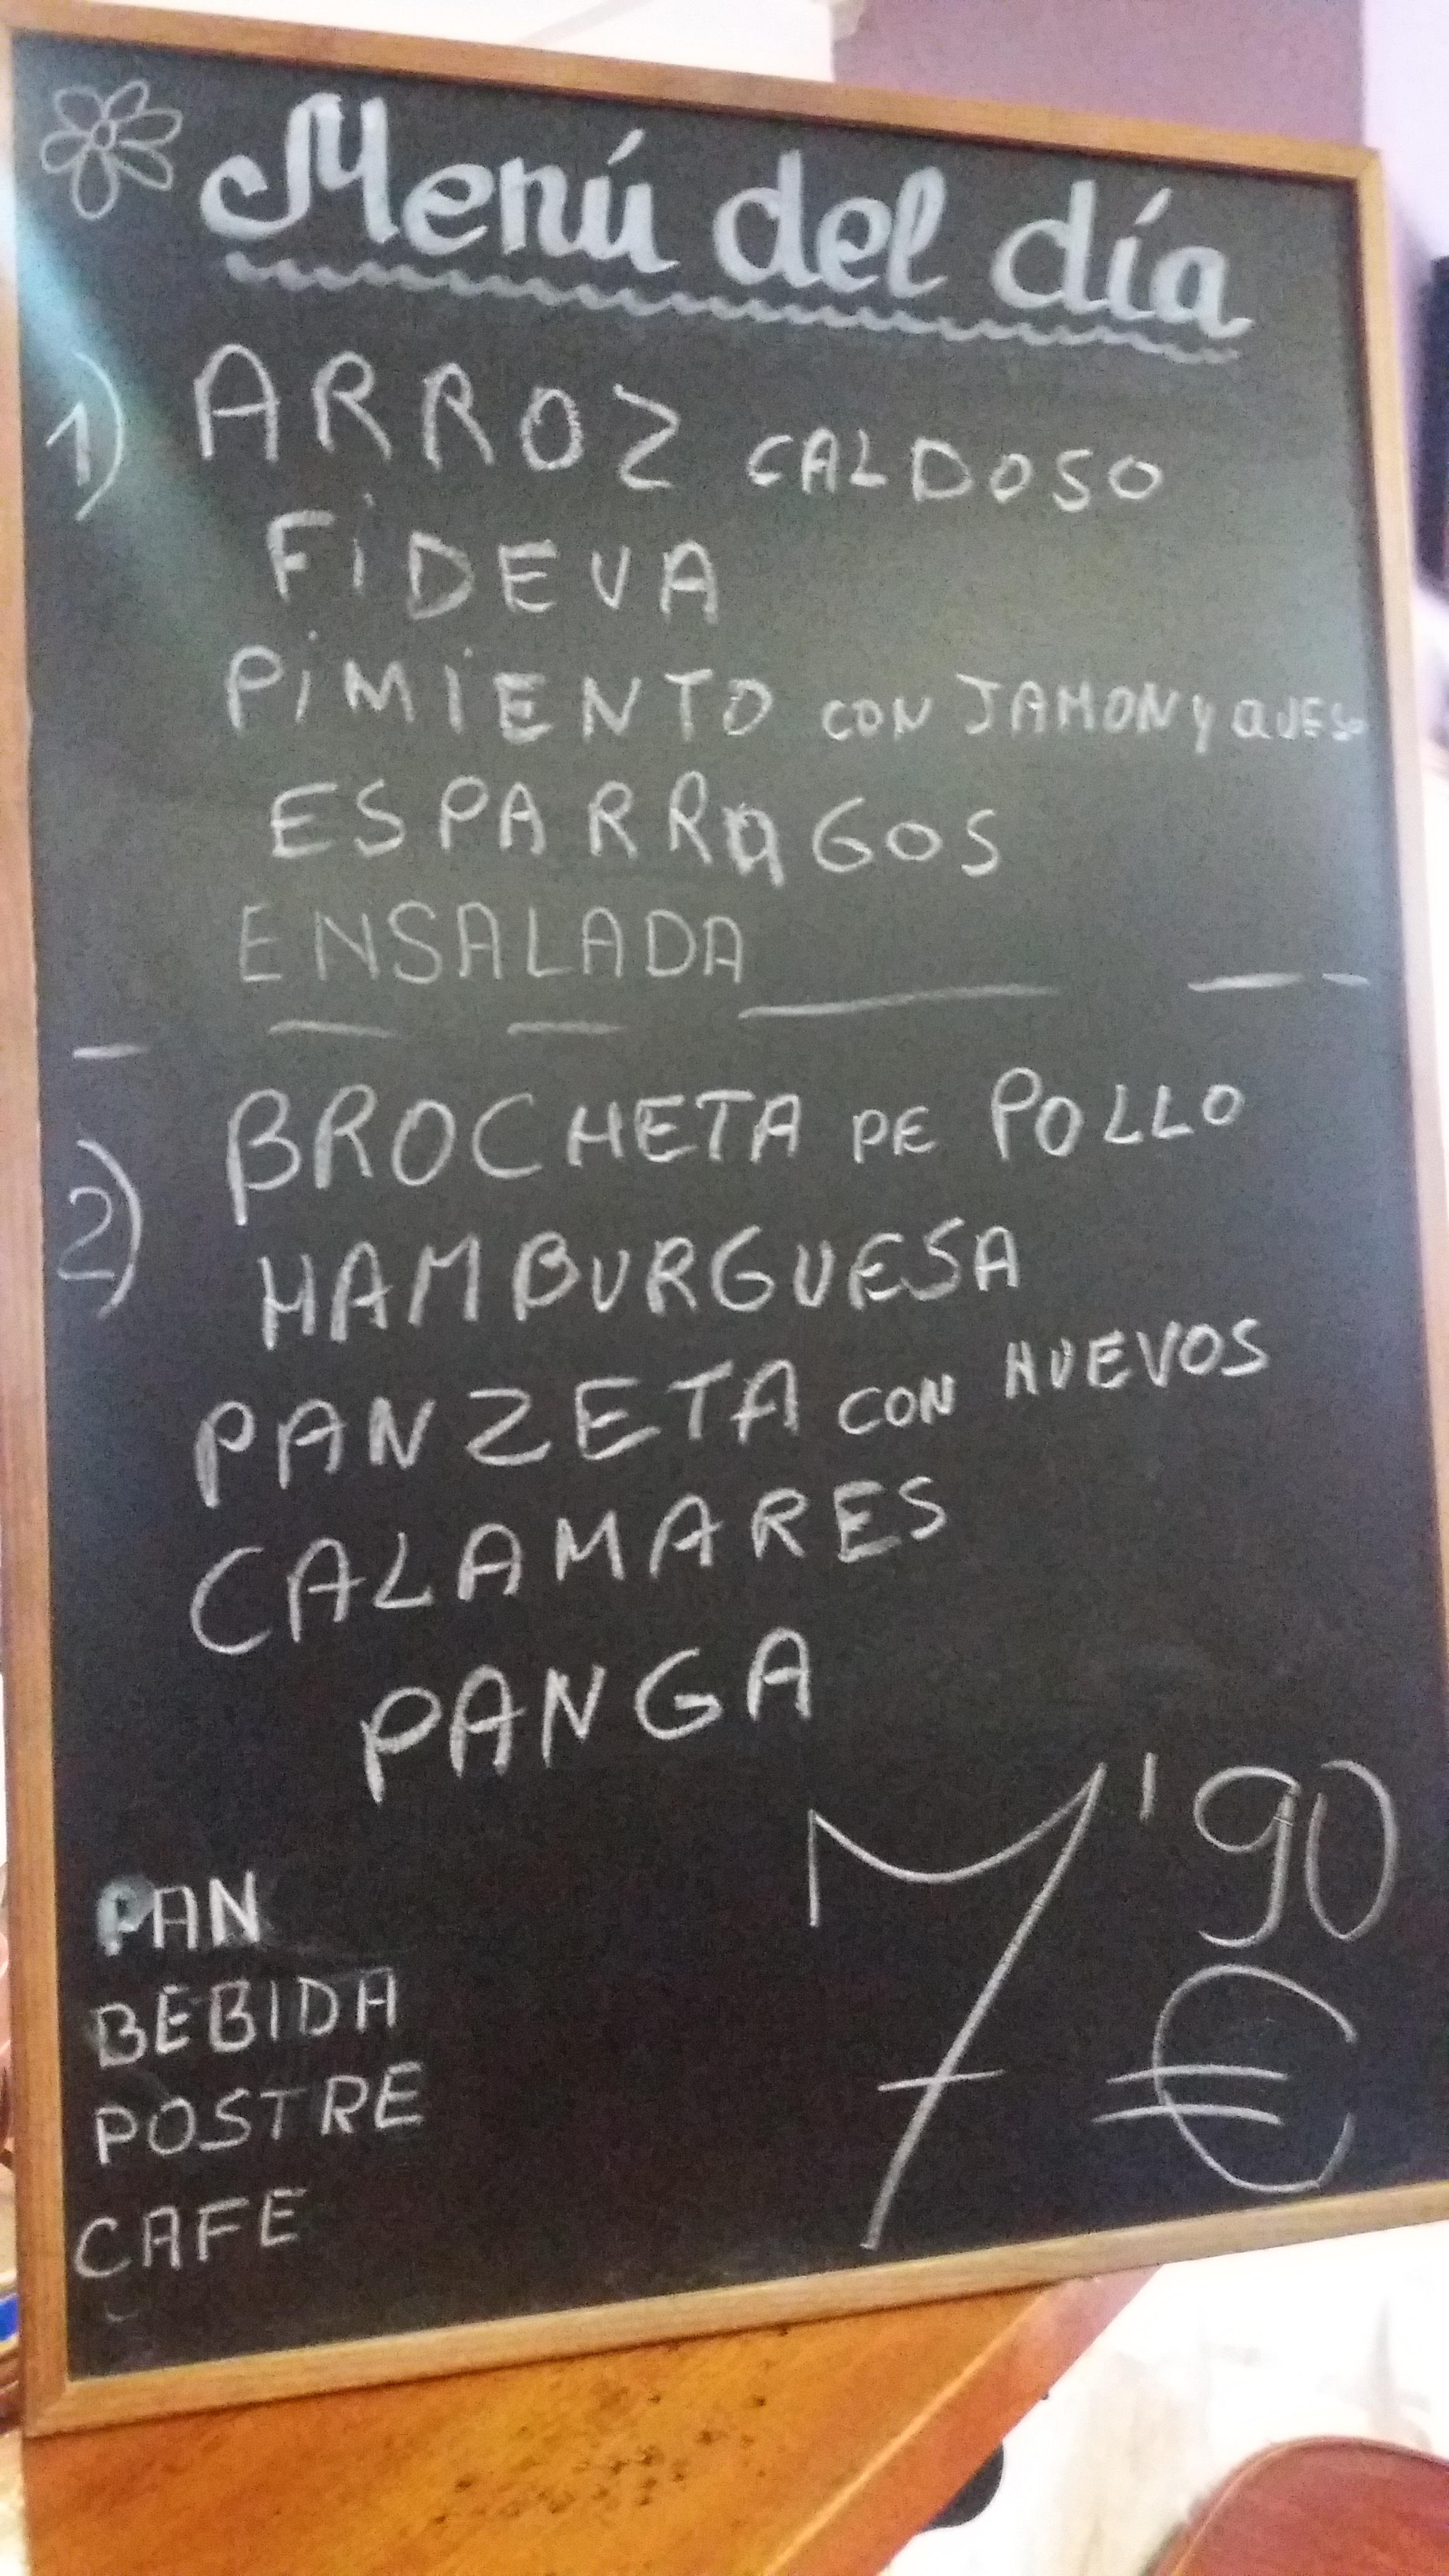 Menú del día
1) ARROZ CALDOSO
FiDEVA
PiMiENTO CON JAMON y QUESO
ESPARRAGOS
ENSALADA
2) BROCHETA DE POLLO
HAMBURGUESA
PANZETA CON HUEVOS
CALAMARES
PANGA
7'90 €
PAN
BEBIDA
POSTRE
CAFE